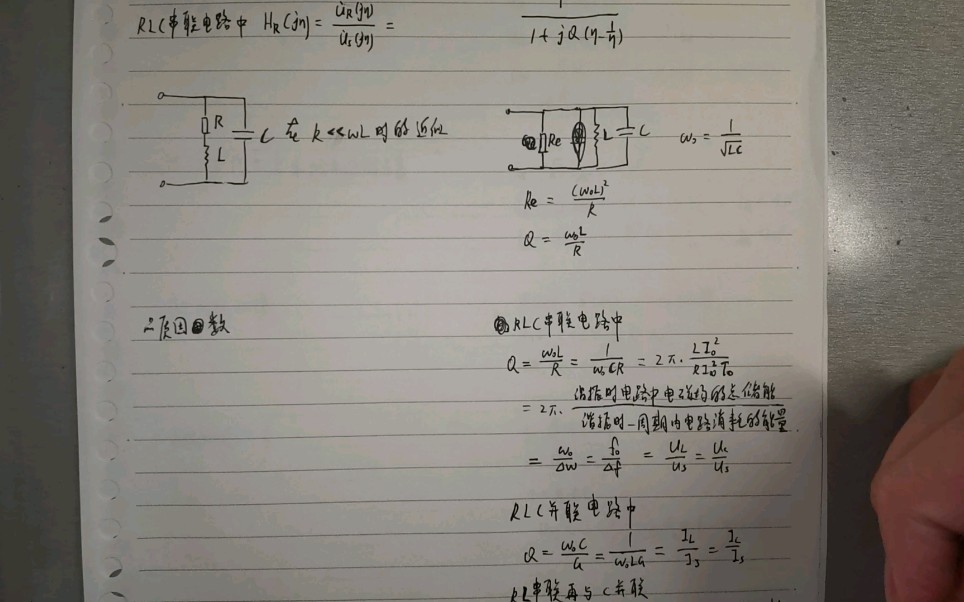 RLC串联电路中 H_R(jη) = U̇_R(jη) / U̇_s(jη) = 1 / (1 + jQ(η - 1/η))
R L C 在 R << ωL 时的近似 Re L C ω₀ = 1/√LC
Re = (ω₀L)² / R
Q = ω₀L / R
二、质因数 RLC串联电路中
Q = ω₀L / R = 1 / ω₀CR = 2π · LI₀² / RI₀²T₀
= 2π · 谐振时电路中电磁场的总储能 / 谐振时一周期内电路消耗的能量
= ω₀ / Δω = f₀ / Δf = U_L / U_s = U_c / U_s
RLC并联电路中
Q = ω₀C / G = 1 / ω₀LG = I_L / I_s = I_c / I_s
RL串联再与C并联